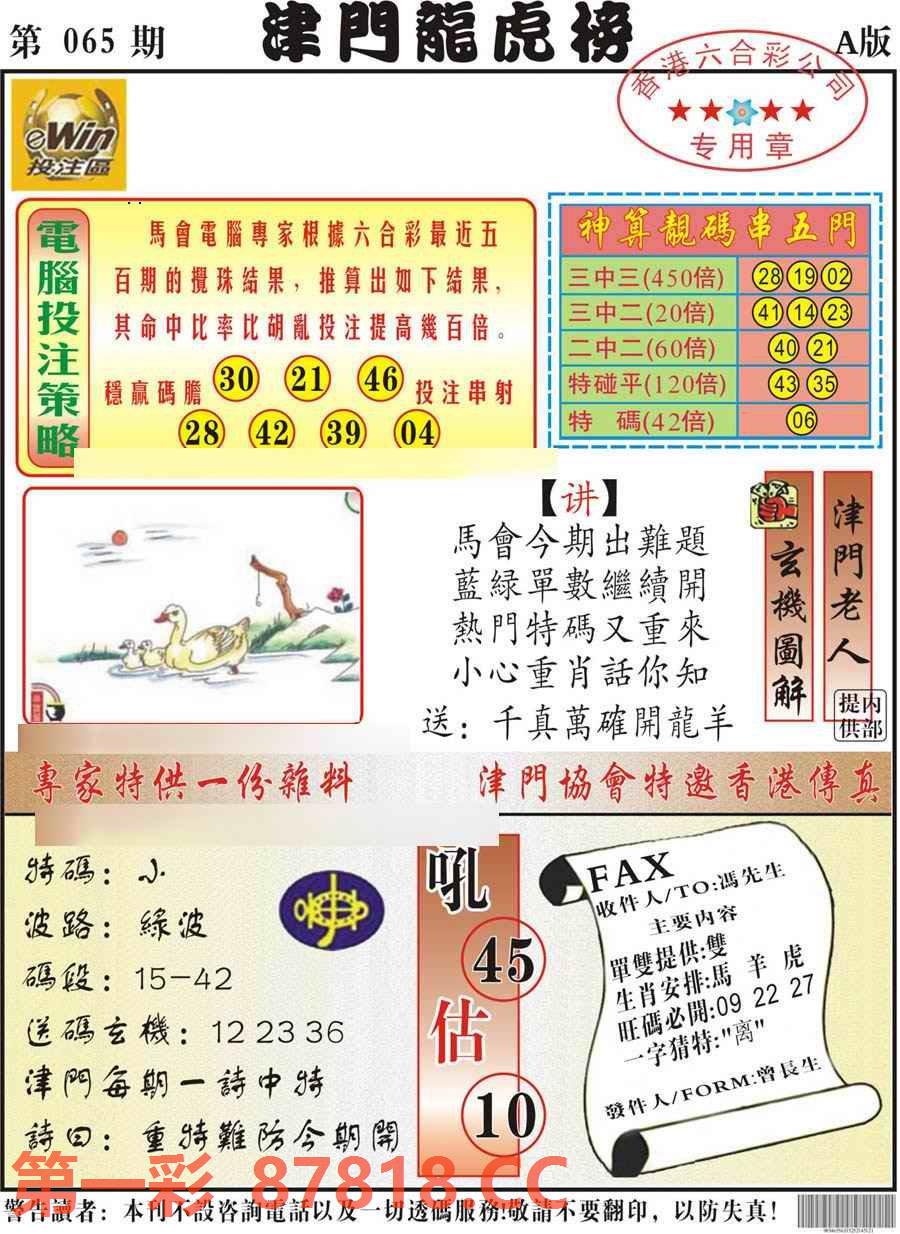 第 065 期
津門龍虎榜
A版
香港六合彩公司
专用章
eWin
投注區
電腦投注策略
馬會電腦專家根據六合彩最近五
百期的攪珠結果，推算出如下結果，
其命中比率比胡亂投注提高幾百倍。
穩贏碼膽 30 21 46 投注串射
28 42 39 04
神算靚碼串五門
三中三(450倍) 28 19 02
三中二(20倍) 41 14 23
二中二(60倍) 40 21
特碰平(120倍) 43 35
特 碼(42倍) 06
【讲】
馬會今期出難題
藍緑單數繼續開
熱門特碼又重來
小心重肖話你知
送：千真萬確開龍羊
玄機圖解
津門老人
内部提供
專家特供一份雜料
津門協會特邀香港傳真
特碼：小
波路：綠波
碼段：15-42
送碼玄機：12 23 36
津門每期一詩中特
詩曰：重特難防今期開
吼
45
估
10
FAX
收件人/TO:馮先生
主要内容
單雙提供:雙
生肖安排:馬 羊 虎
旺碼必開:09 22 27
一字猜特:"离"
發件人/FORM:曾長生
第一彩 87818.CC
警告讀者：本刊不設咨詢電話以及一切透碼服務!敬請不要翻印，以防失真！